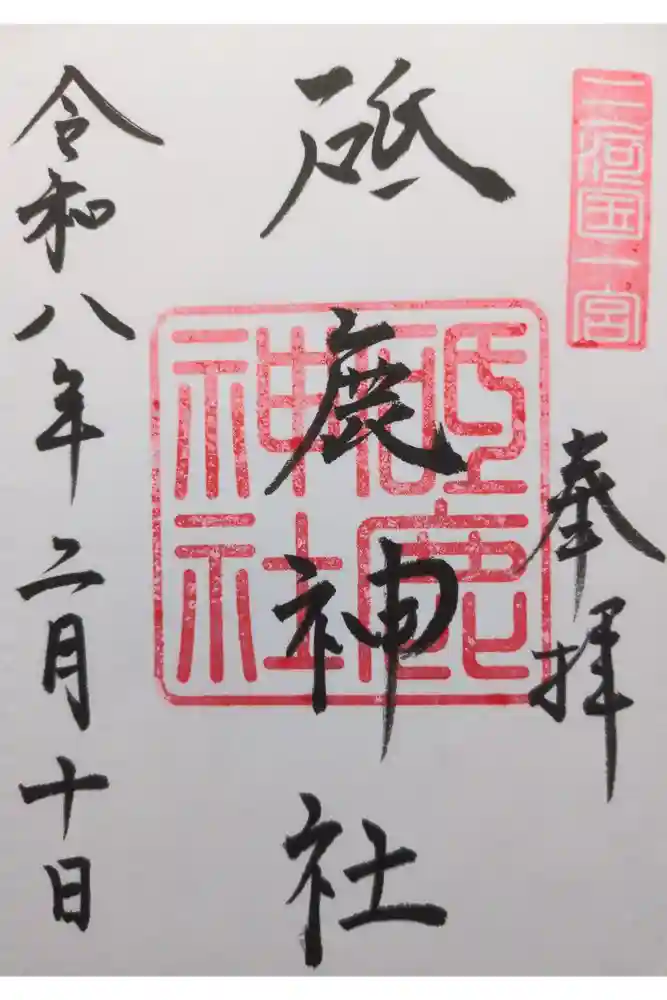 三河国一宮
奉拝
砥鹿神社
砥鹿
神社
令和八年二月十日